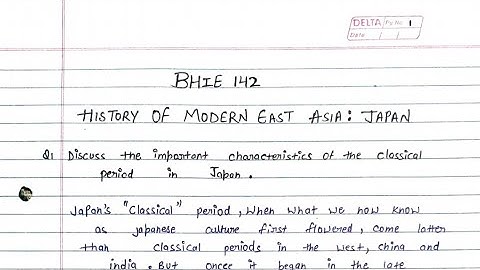 DELTA Pg No. 1
Date / /
BHIE 142
HISTORY OF MODERN EAST ASIA: JAPAN
Q1 Discuss the important characteristics of the classical
period in Japan.
Japan's "Classical" period, When what we now know
as japanese culture first flowered, come latter
than classical periods in the west, china and
india. But oncee it began in the late